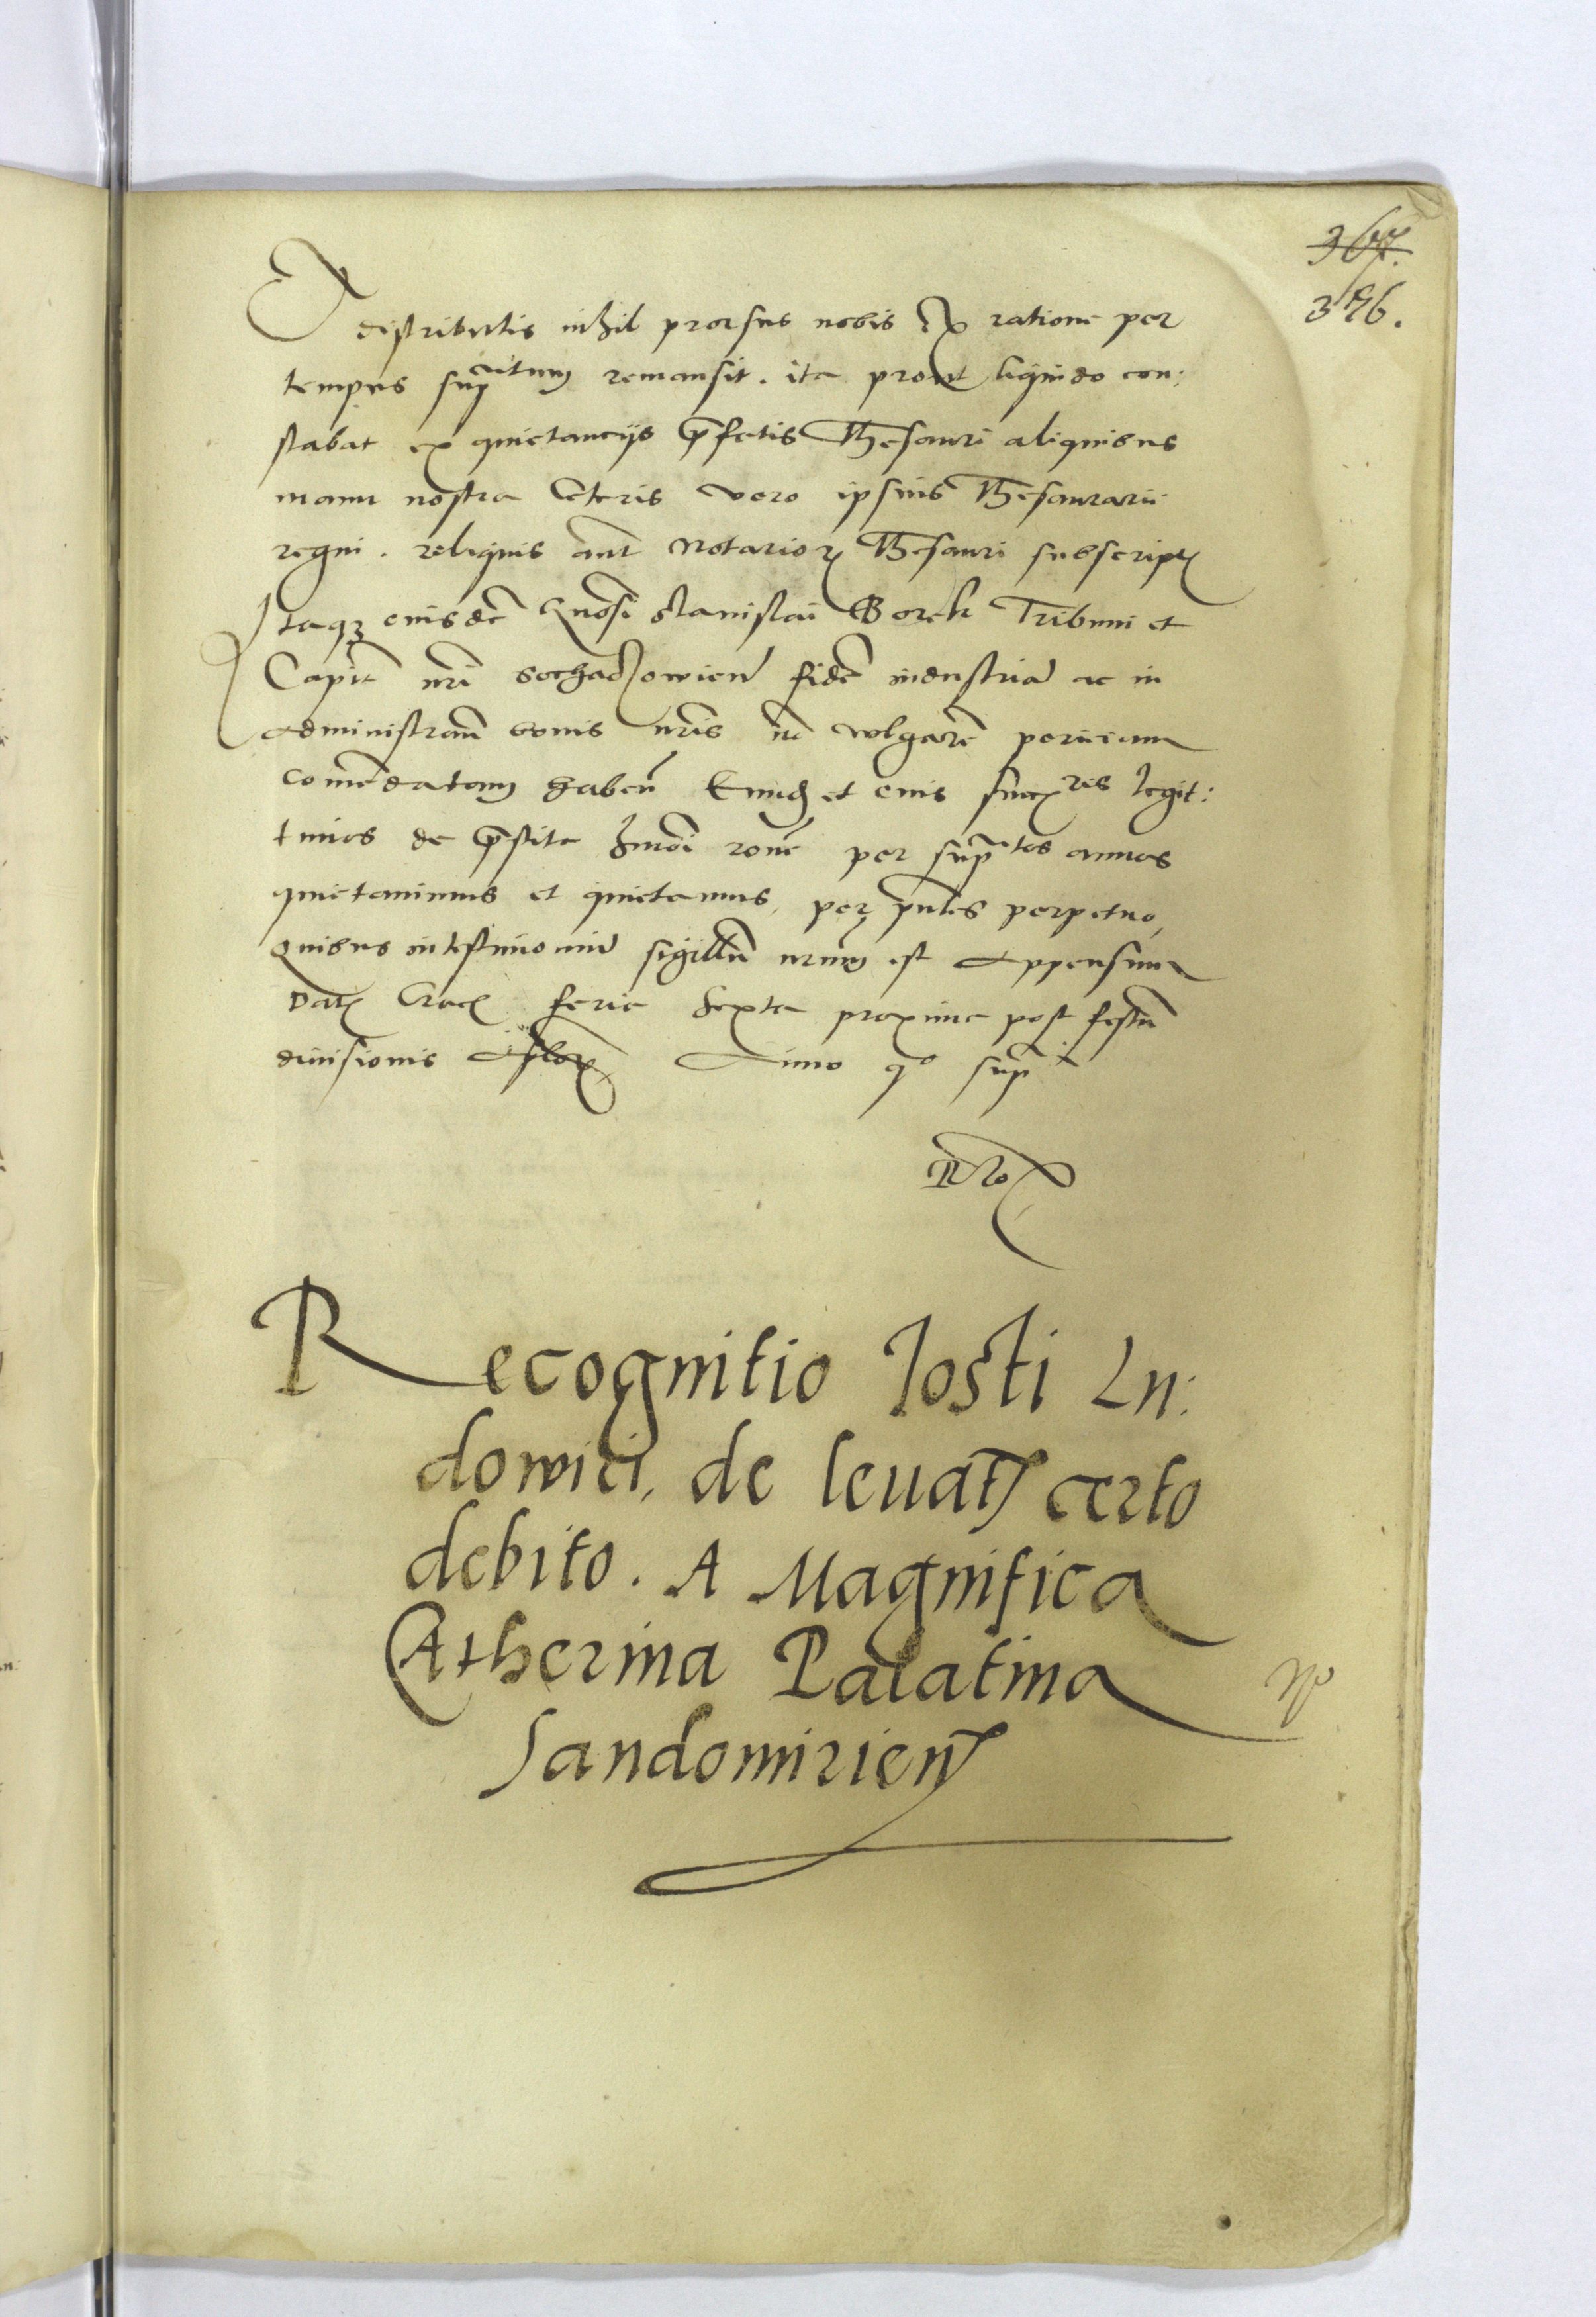 367.
376.
Et distributis nihil prorsus nobis ex ratione per
tempus supratum remansit. ita prout liquido con:
stabat ex quietancijs prefatis Thesauri aliquibus
manu nostra Ceteris vero ipsius Thesaurarii
regni. reliquis aut Notarior Thesauri subscript
Itaqz eiusdem Gnosi Stanislai Borek Tribuni et
Capit nri Sochaczowien fidem industriam ac in
administrandis bonis nris non vulgarem periciam
comendatam haben Eund et eius succris legit:
timos de prestita hmoi rone per supratos annos
quietavimus et quietamus, per pntes perpetuo,
quibus in testimoniu sigillu nrum est appensum
Dat Crac feria Sexta proxima post festu
divisionis aplor Anno quo supra
Recognitio Josti Lu:
dowici, de levat certo
debito. A Magnifica
Catherina Palatina
Sandomirien